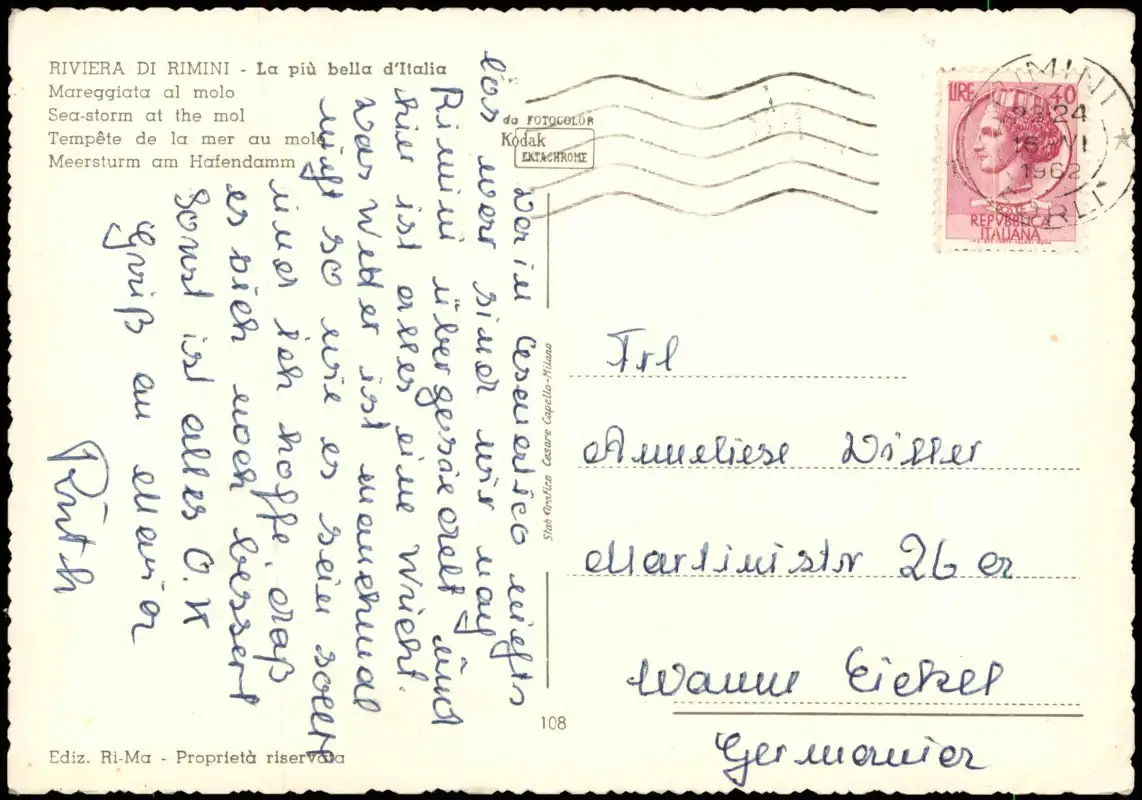 RIVIERA DI RIMINI - La più bella d'Italia
Mareggiata al molo
Sea-storm at the mol
Tempête de la mer au mole
Meersturm am Hafendamm
da FOTOCOLOR
Kodak
EKTACHROME
Da in Cesenatico nichts
los war sind wir nach
Rimini übergesiedelt und
hier ist alles eine Wucht.
Das Wetter ist manchmal
nicht so wie es sein sollte
aber ich hoffe, daß
es sich noch bessert
Sonst ist alles O.K
Gruß an Maria
Ruth
Stab. Grafico Cesare Capello-Milano
108
Ediz. Ri-Ma - Proprietà riservata
LIRE 40
REPVBBLICA
ITALIANA
RIMINI
24
16 VI
1962
Frl
Anneliese
Martinistr 26 a
Wanne Eickel
Germania